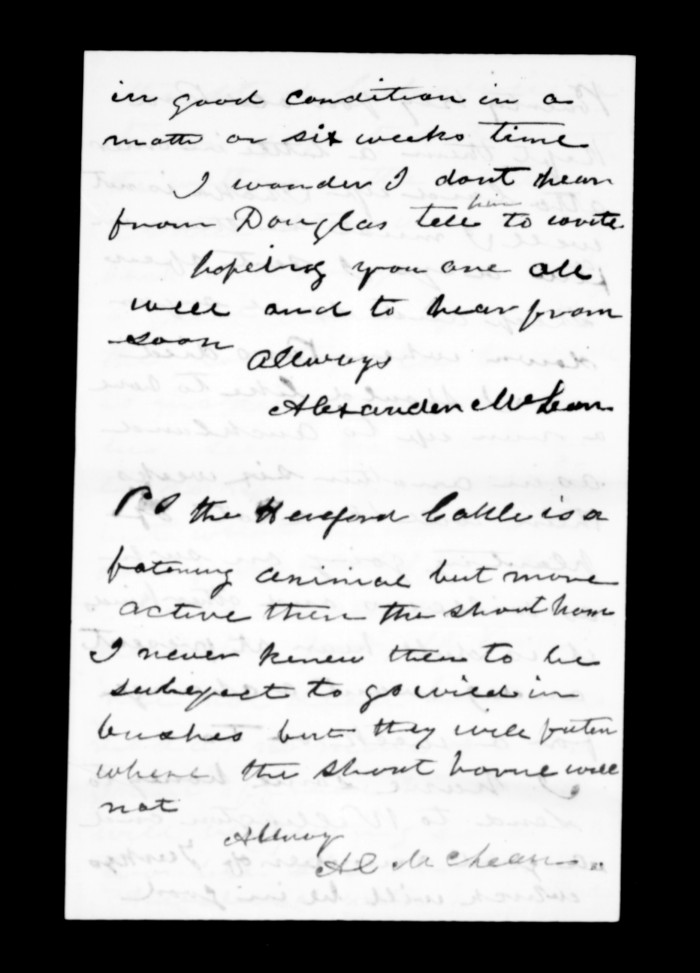 in good condition in a
moth or six weeks time
I wonder I dont hear
from Douglas tell him to write
hopeing you are all
well and to hear from
soon
Allways
Alexander McLean
PS the Hereford Cattle is a
fatening animal but more
active then the short horn
I never knew then to be
subepect to go wild in
bushes but they will faten
where the short horne will
not
Allway
Al McLean